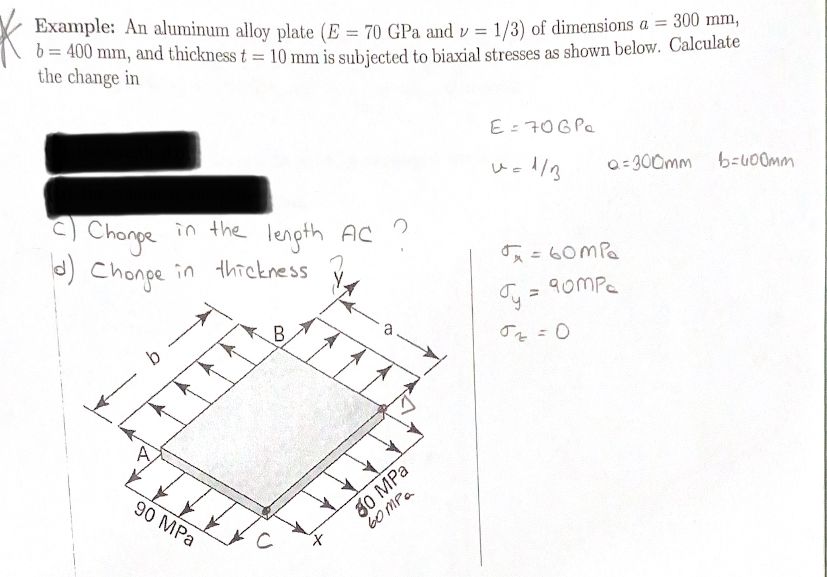 Example: An aluminum alloy plate (E = 70 GPa and ν = 1/3) of dimensions a = 300 mm,
b = 400 mm, and thickness t = 10 mm is subjected to biaxial stresses as shown below. Calculate
the change in
E = 70GPa
ν = 1/3 a=300mm b=400mm
c) Change in the length AC ?
d) Change in thickness ?
σx = 60MPa
σy = 90MPa
σz = 0
y
B
a
b
A
D
90 MPa
80 MPa
60 MPa
C
x